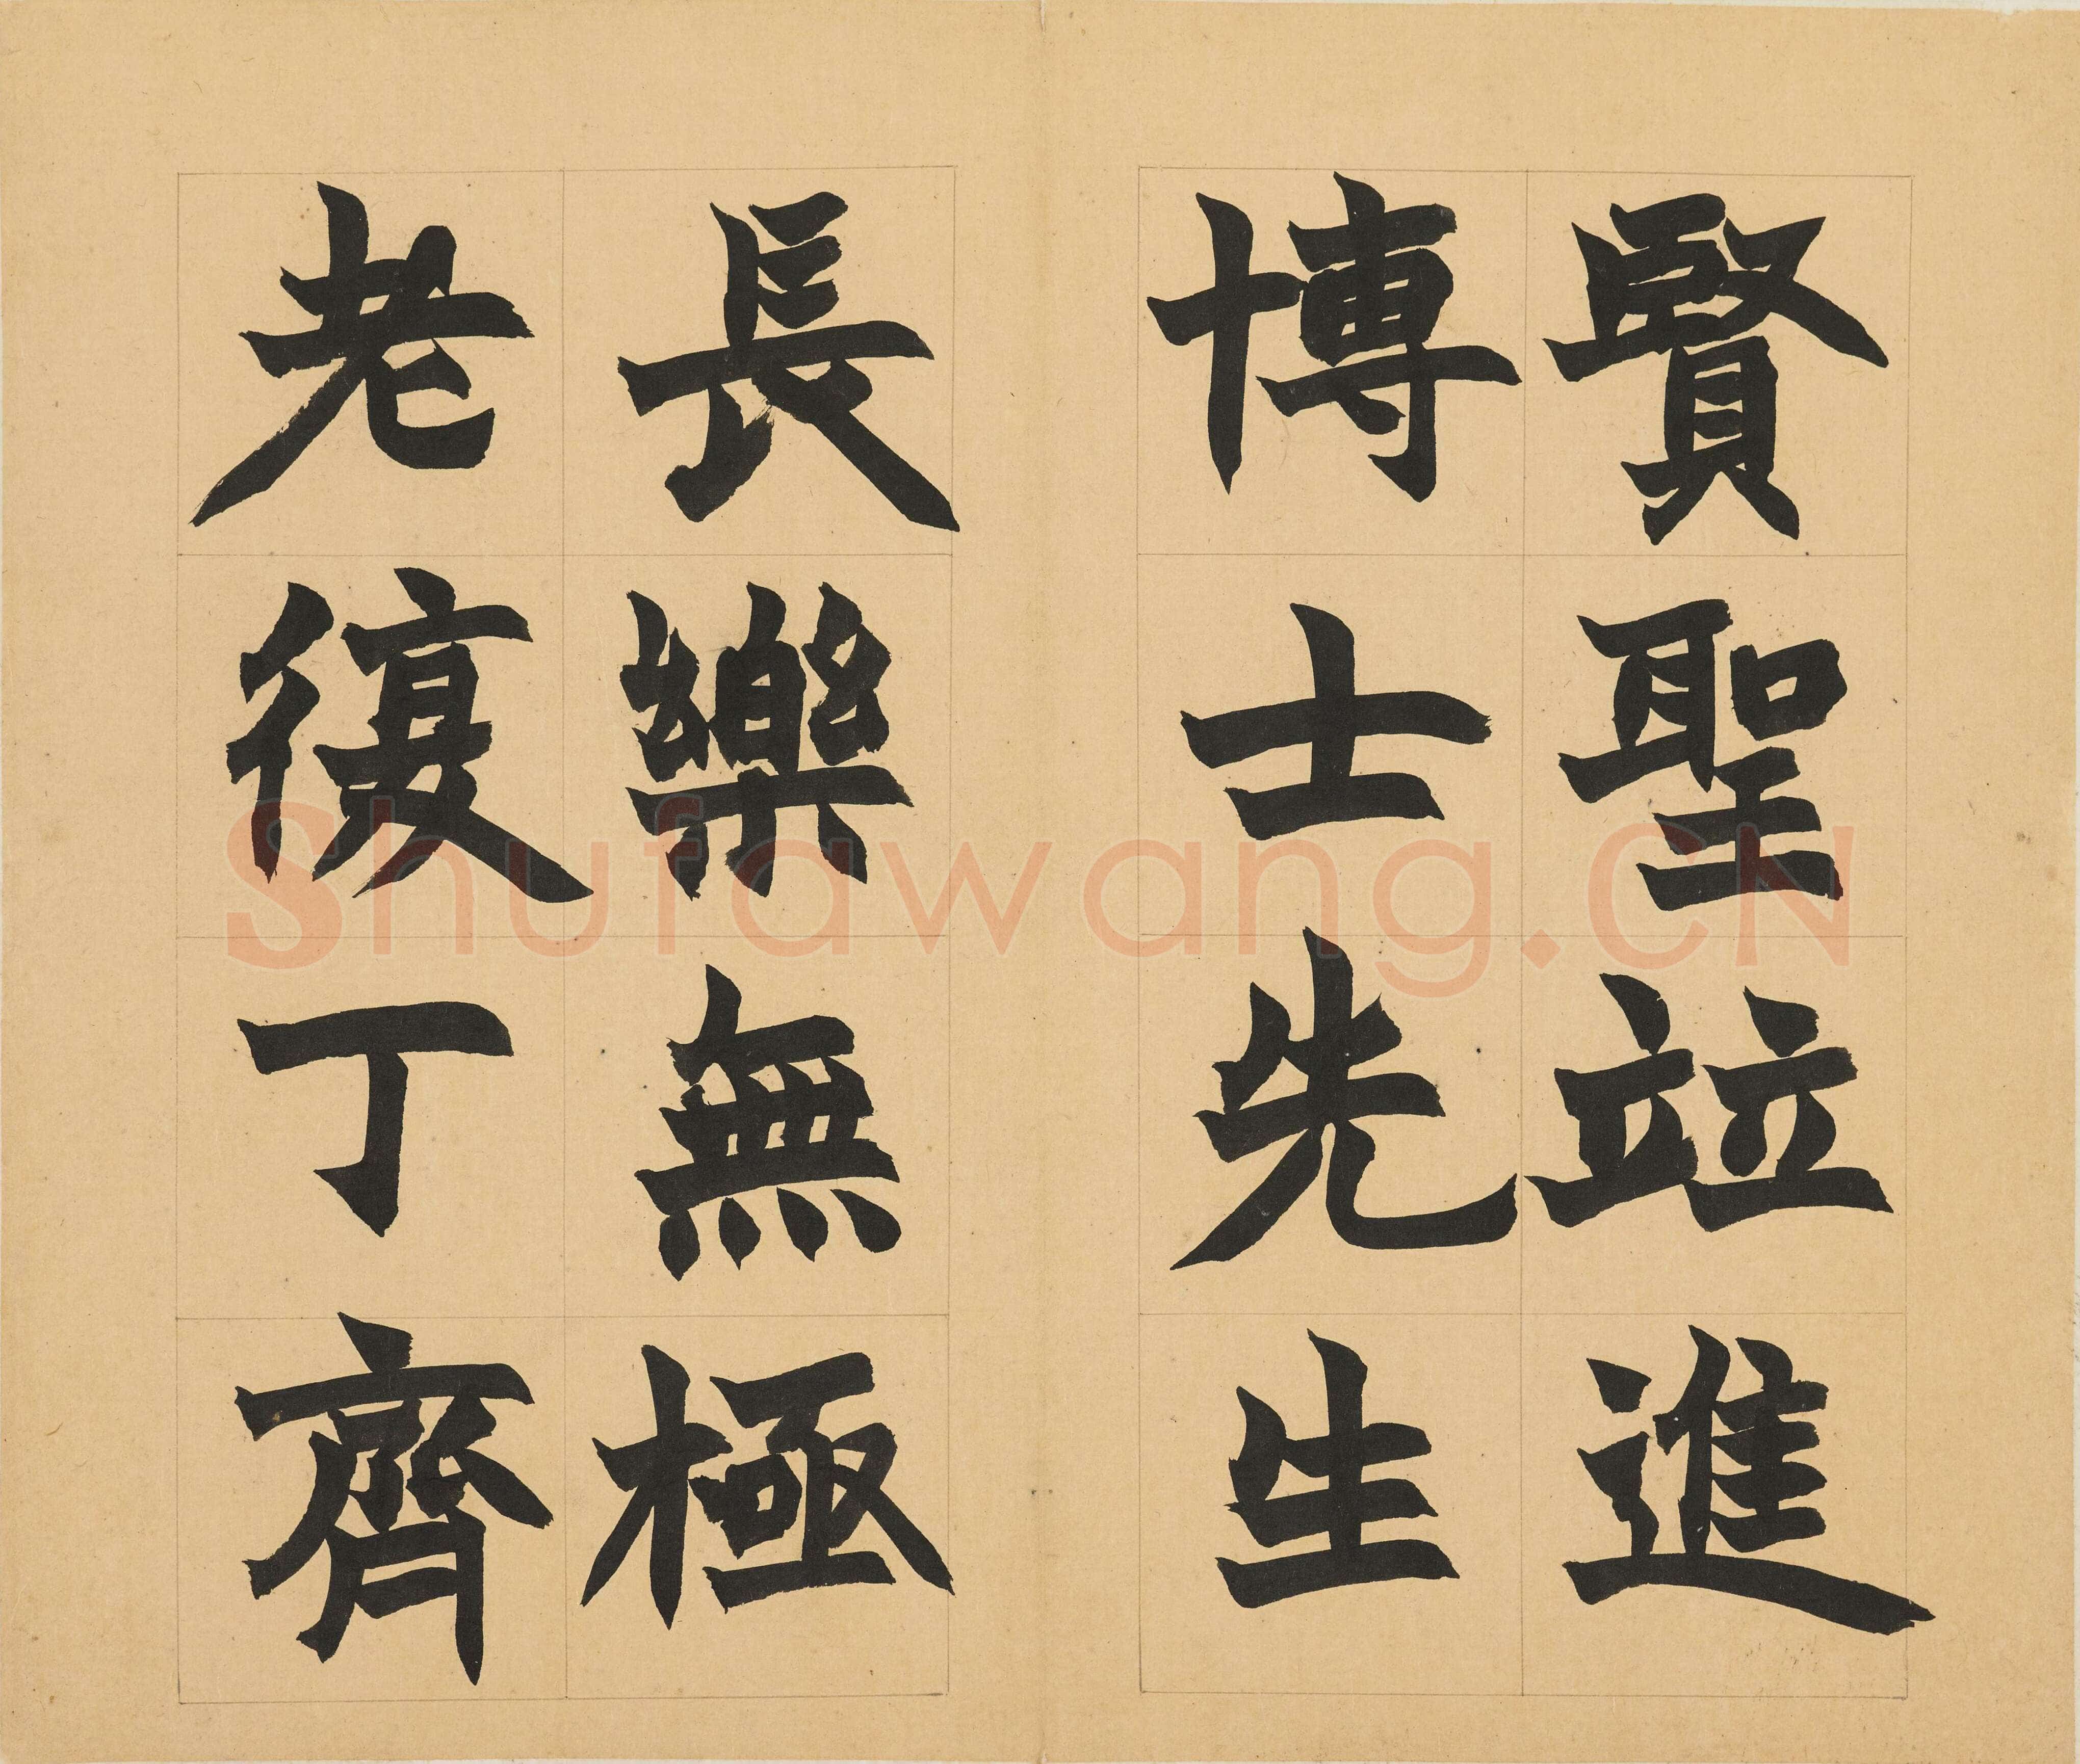 賢聖竝進
博士先生
長樂無極
老復丁齊
Shufawang.CN